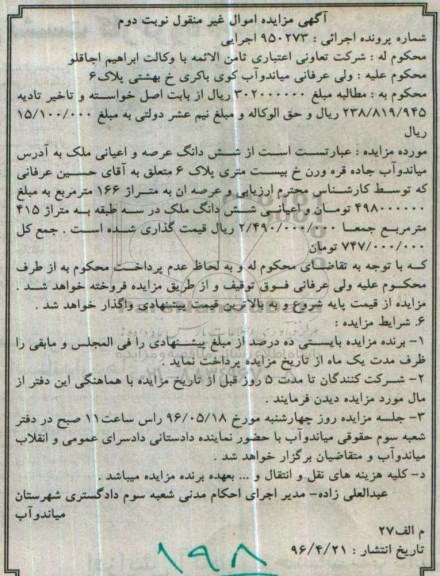 آگهی مزایده اموال غیر منقول نوبت دوم
شماره پرونده اجرائی : ۹۵۰۲۷۳ اجرایی
محکوم له : شرکت تعاونی اعتباری ثامن الائمه با وکالت ابراهیم اجاقلو
محکوم علیه : ولی عرفانی میاندوآب کوی باکری خ بهشتی پلاک۶
محکوم به : مطالبه مبلغ ۳۰۲۰۰۰۰۰۰ ریال از بابت اصل خواسته و تاخیر تادیه
۲۳۸/۸۱۹/۹۴۵ ریال و حق الوکاله و مبلغ نیم عشر دولتی به مبلغ ۱۵/۱۰۰/۰۰۰
ریال
مورده مزایده : عبارتست است از شش دانگ عرصه و اعیانی ملک به آدرس
میاندوآب جاده قره ورن خ بیست متری پلاک ۶ متعلق به آقای حسین عرفانی
که توسط کارشناس محترم ارزیابی و عرصه ان به متراژ ۱۶۶ مترمربع به مبلغ
۴۹۸۰۰۰۰۰۰ تومان و اعیانی شش دانگ ملک در سه طبقه به متراژ ۴۱۵
مترمربع جمعا ۲/۴۹۰/۰۰۰/۰۰۰ ریال قیمت گذاری شده است . جمع کل
۷۴۷/۰۰۰/۰۰۰ تومان
که با توجه به تقاضای محکوم له و به لحاظ عدم پرداخت محکوم به از طرف
محکوم علیه ولی عرفانی فوق توقیف و از طریق مزایده فروخته خواهد شد .
مزایده از قیمت پایه شروع و به بالاترین قیمت پیشنهادی واگذار خواهد شد .
۶. شرایط مزایده :
۱- برنده مزایده بایستی ده درصد از مبلغ پیشنهادی را فی المجلس و مابقی را
ظرف مدت یک ماه از تاریخ مزایده پرداخت نماید .
۲- شرکت کنندگان تا مدت ۵ روز قبل از تاریخ مزایده با هماهنگی این دفتر از
مال مورد مزایده دیدن فرمایند .
۳- جلسه مزایده روز چهارشنبه مورخ ۹۶/۰۵/۱۸ راس ساعت۱۱ صبح در دفتر
شعبه سوم حقوقی میاندوآب با حضور نماینده دادستانی دادسرای عمومی و انقلاب
میاندوآب و متقاضیان برگزار خواهد شد .
د- کلیه هزینه های نقل و انتقال و ... بعهده برنده مزایده میباشد .
عبدالعلی زاده- مدیر اجرای احکام مدنی شعبه سوم دادگستری شهرستان
میاندوآب
م الف۲۷
تاریخ انتشار : ۹۶/۴/۲۱
۱۹۸